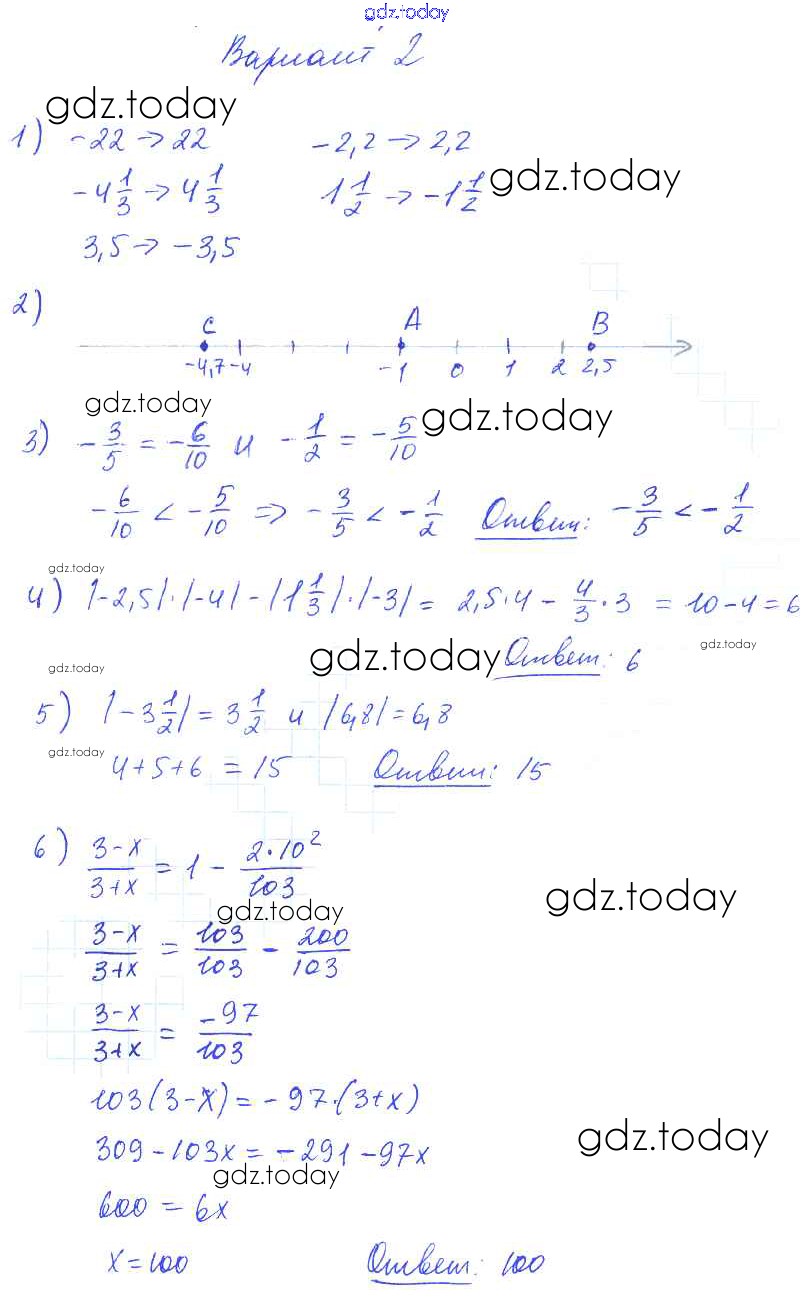 gdz.today
Вариант 2
gdz.today
1) -22 → 22   -2,2 → 2,2
-4 1/3 → 4 1/3   1 1/2 → -1 1/2 gdz.today
3,5 → -3,5
2)
C A B
-4,7 -4 -1 0 1 2 2,5
gdz.today
3) -3/5 = -6/10 и -1/2 = -5/10 gdz.today
-6/10 < -5/10 ⇒ -3/5 < -1/2 Ответ: -3/5 < -1/2
gdz.today
4) |-2,5|·|-4| - |1 1/3|·|-3| = 2,5·4 - 4/3·3 = 10-4=6
gdz.today gdz.today Ответ: 6 gdz.today
5) |-3 1/2| = 3 1/2 и |6,8| = 6,8
gdz.today
4+5+6 = 15 Ответ: 15
6) (3-x)/(3+x) = 1 - (2·10²)/103
gdz.today gdz.today
(3-x)/(3+x) = 103/103 - 200/103
(3-x)/(3+x) = -97/103
103(3-x) = -97·(3+x)
gdz.today
309-103x = -291-97x
gdz.today
600 = 6x
x=100 Ответ: 100